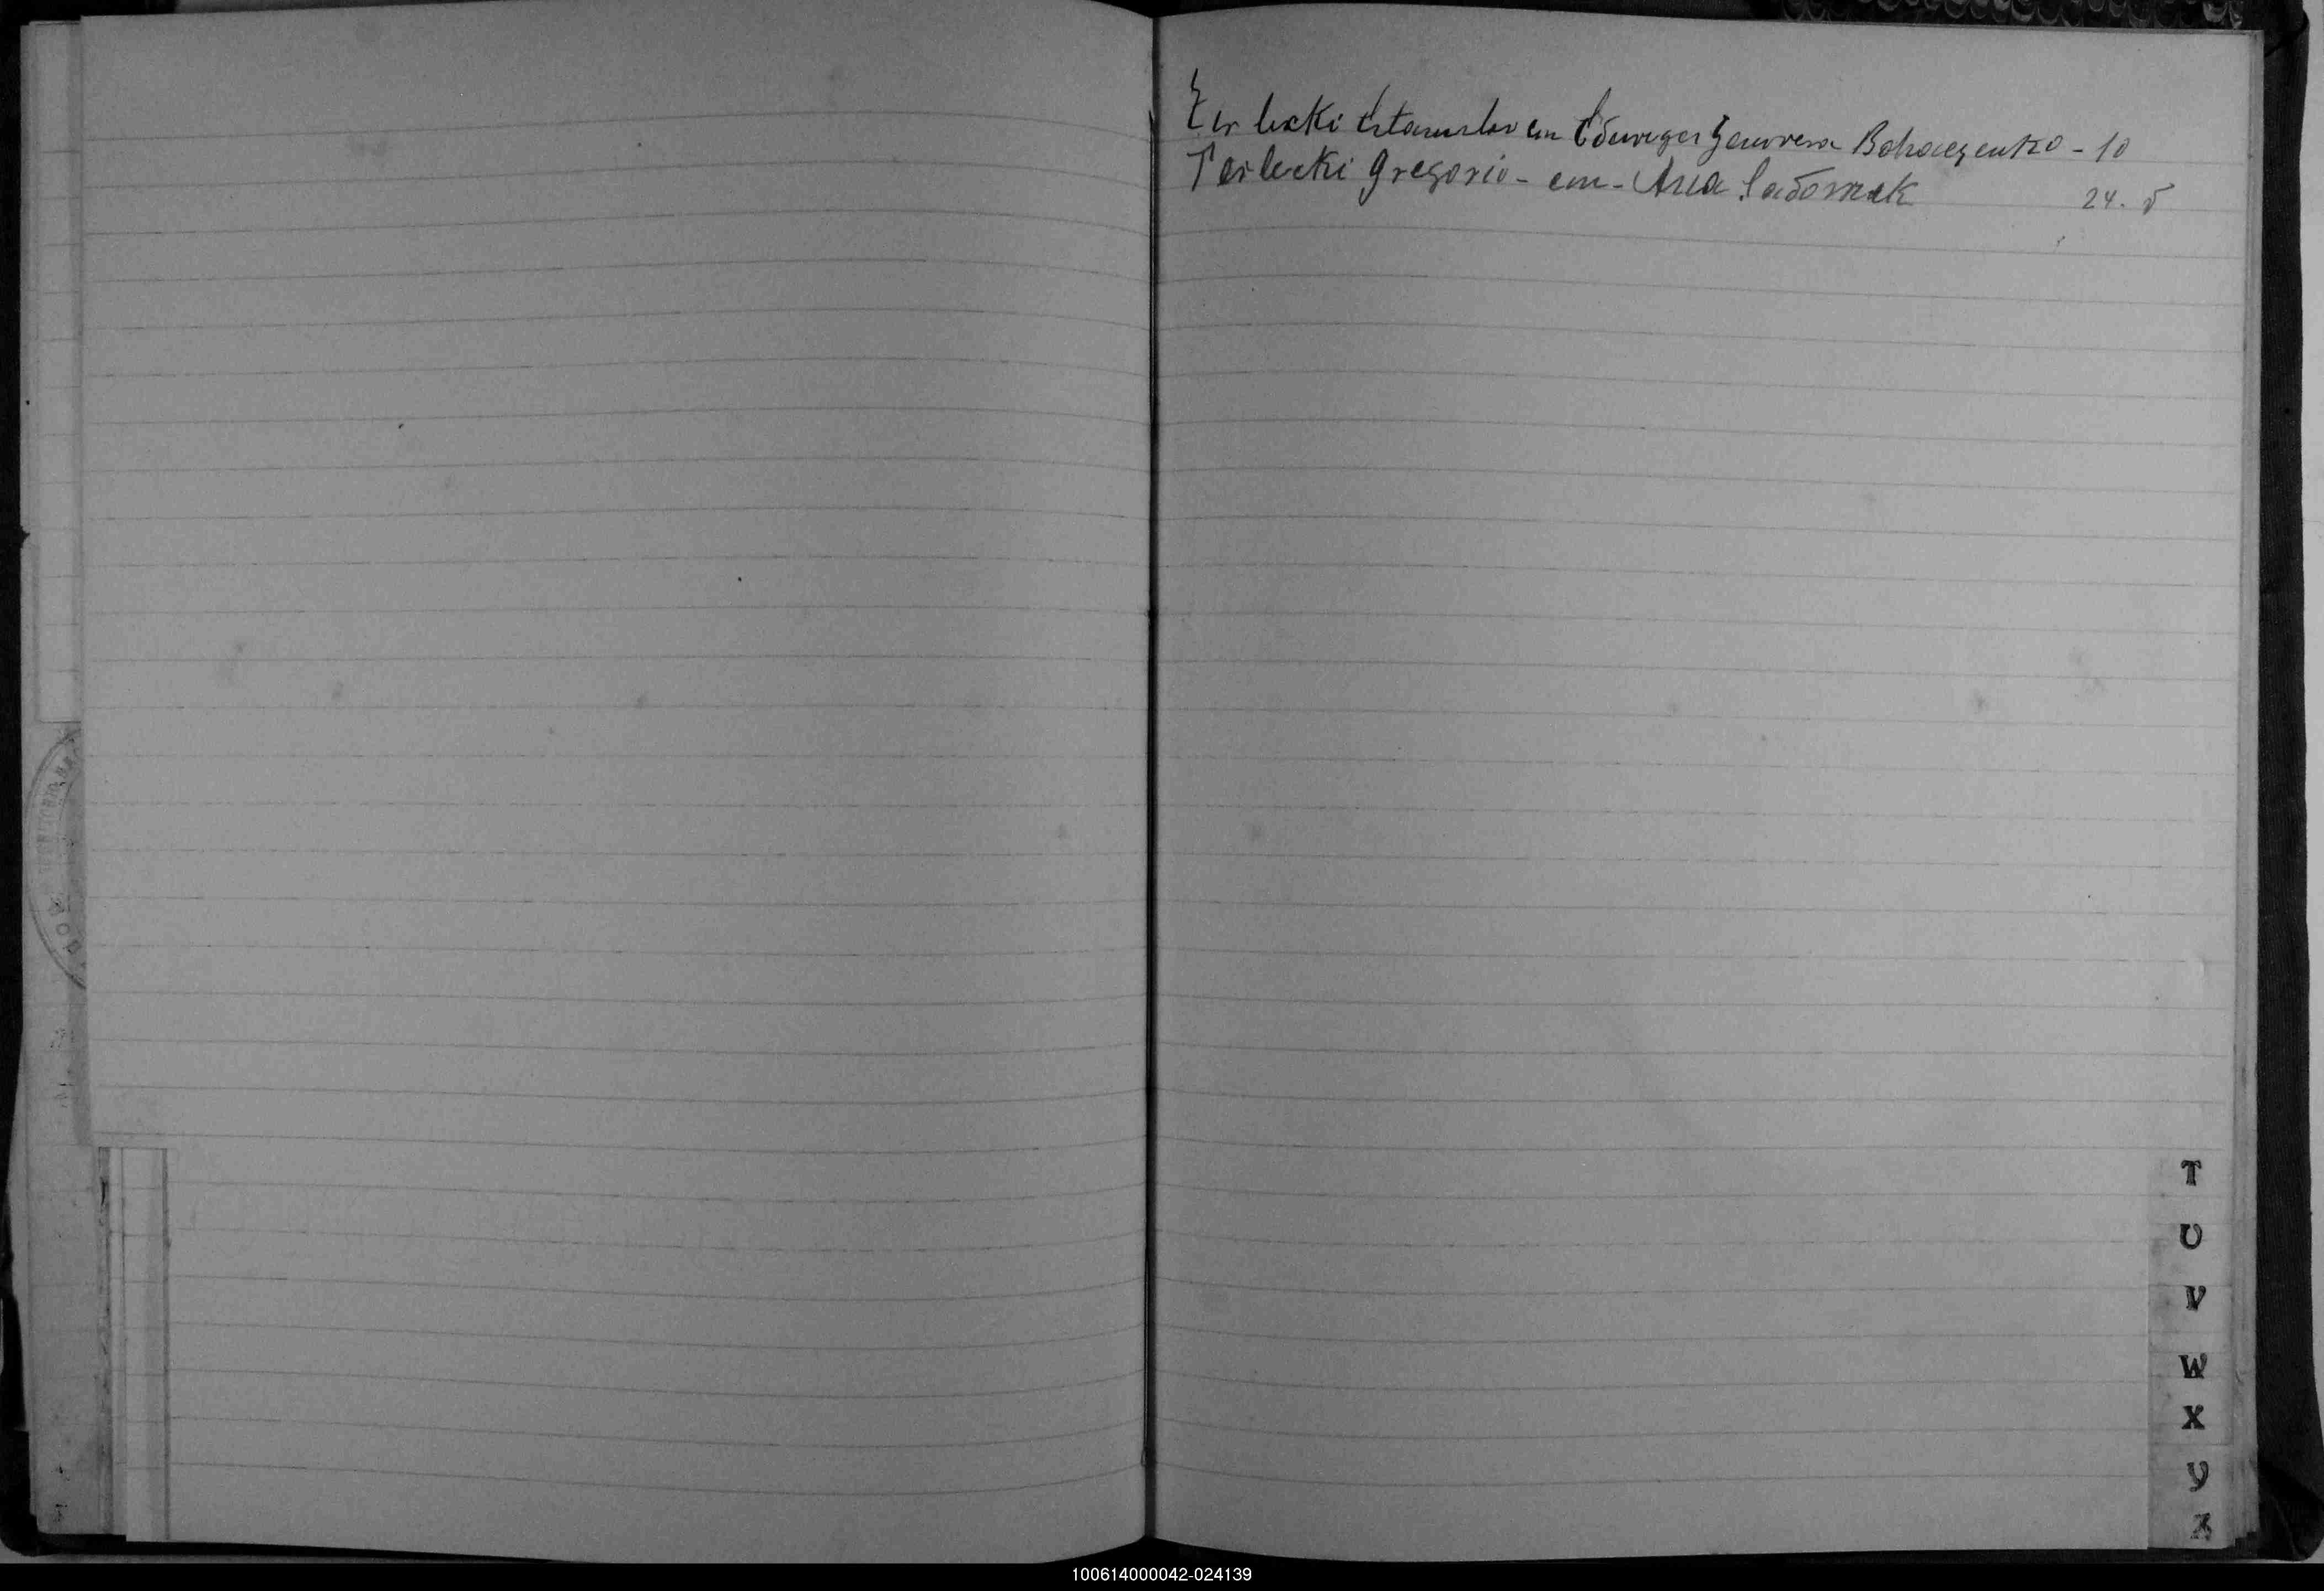 Terlecki Estanislao con Eduviges Genoveva Bohaczenko - 10
Terlecki Gregorio - con - Ana Sadornak 24. 5
T
U
V
W
X
Y
Z
100614000042-024139